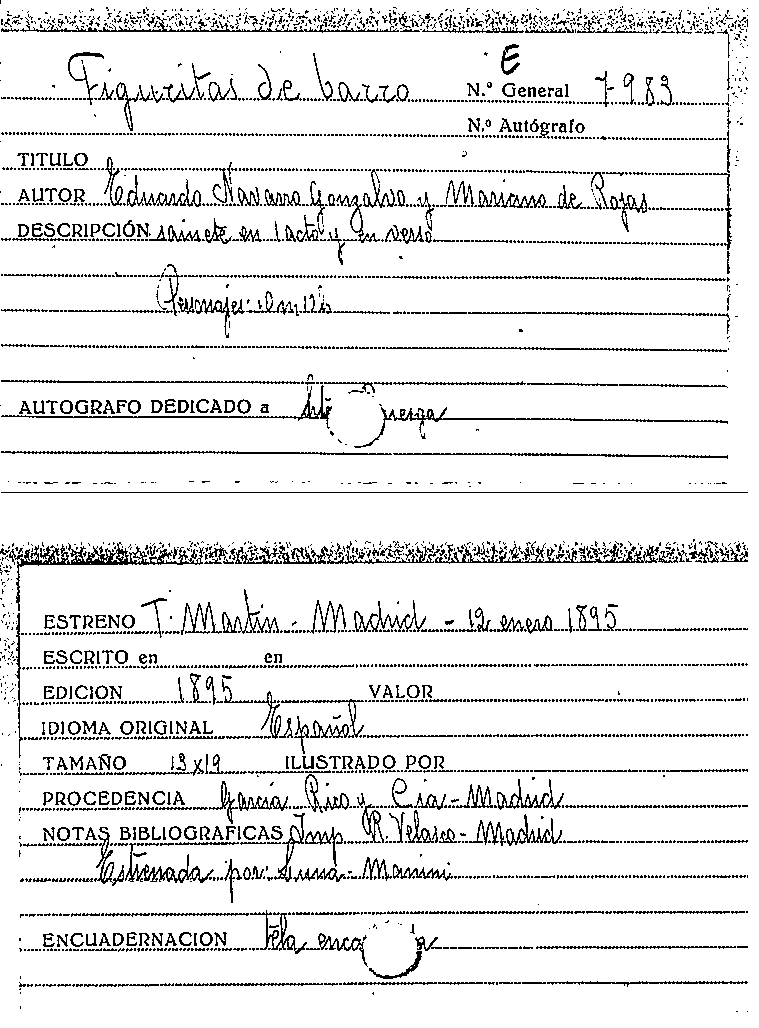 E
Figuritas de barro N.º General 7-983
N.º Autógrafo
TITULO
AUTOR Eduardo Navarro Gonzalvo y Mariano de Rojas
DESCRIPCIÓN sainete en 1 acto y en verso
Personajes: 10 m 12 h
AUTOGRAFO DEDICADO a
ESTRENO T. Martín - Madrid - 12 enero 1895
ESCRITO en en
EDICION 1895 VALOR
IDIOMA ORIGINAL Español
TAMAÑO 13 x 19 ILUSTRADO POR
PROCEDENCIA García Rico y Cia - Madrid
NOTAS BIBLIOGRAFICAS Imp. R. Velasco - Madrid
Estrenada por: Luna - Manini
ENCUADERNACION tela